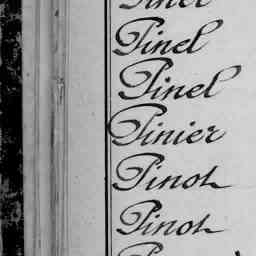 Pinel
Pinel
Pinier
Pinot
Pinot